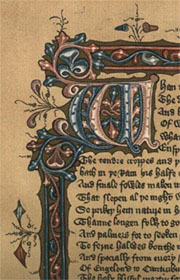 Whan
The d
And b
Of w
What
Enspi
The tendre croppes and yo
hath in þe Ram his halfe c
And smale foweles maken
That slepen al þe nyght w
So priketh hem nature in h
Thanne longen folk to go
And palmeres for to seken
To ferne halwes
And specially from every s
Of Engelond to
The holy blisful